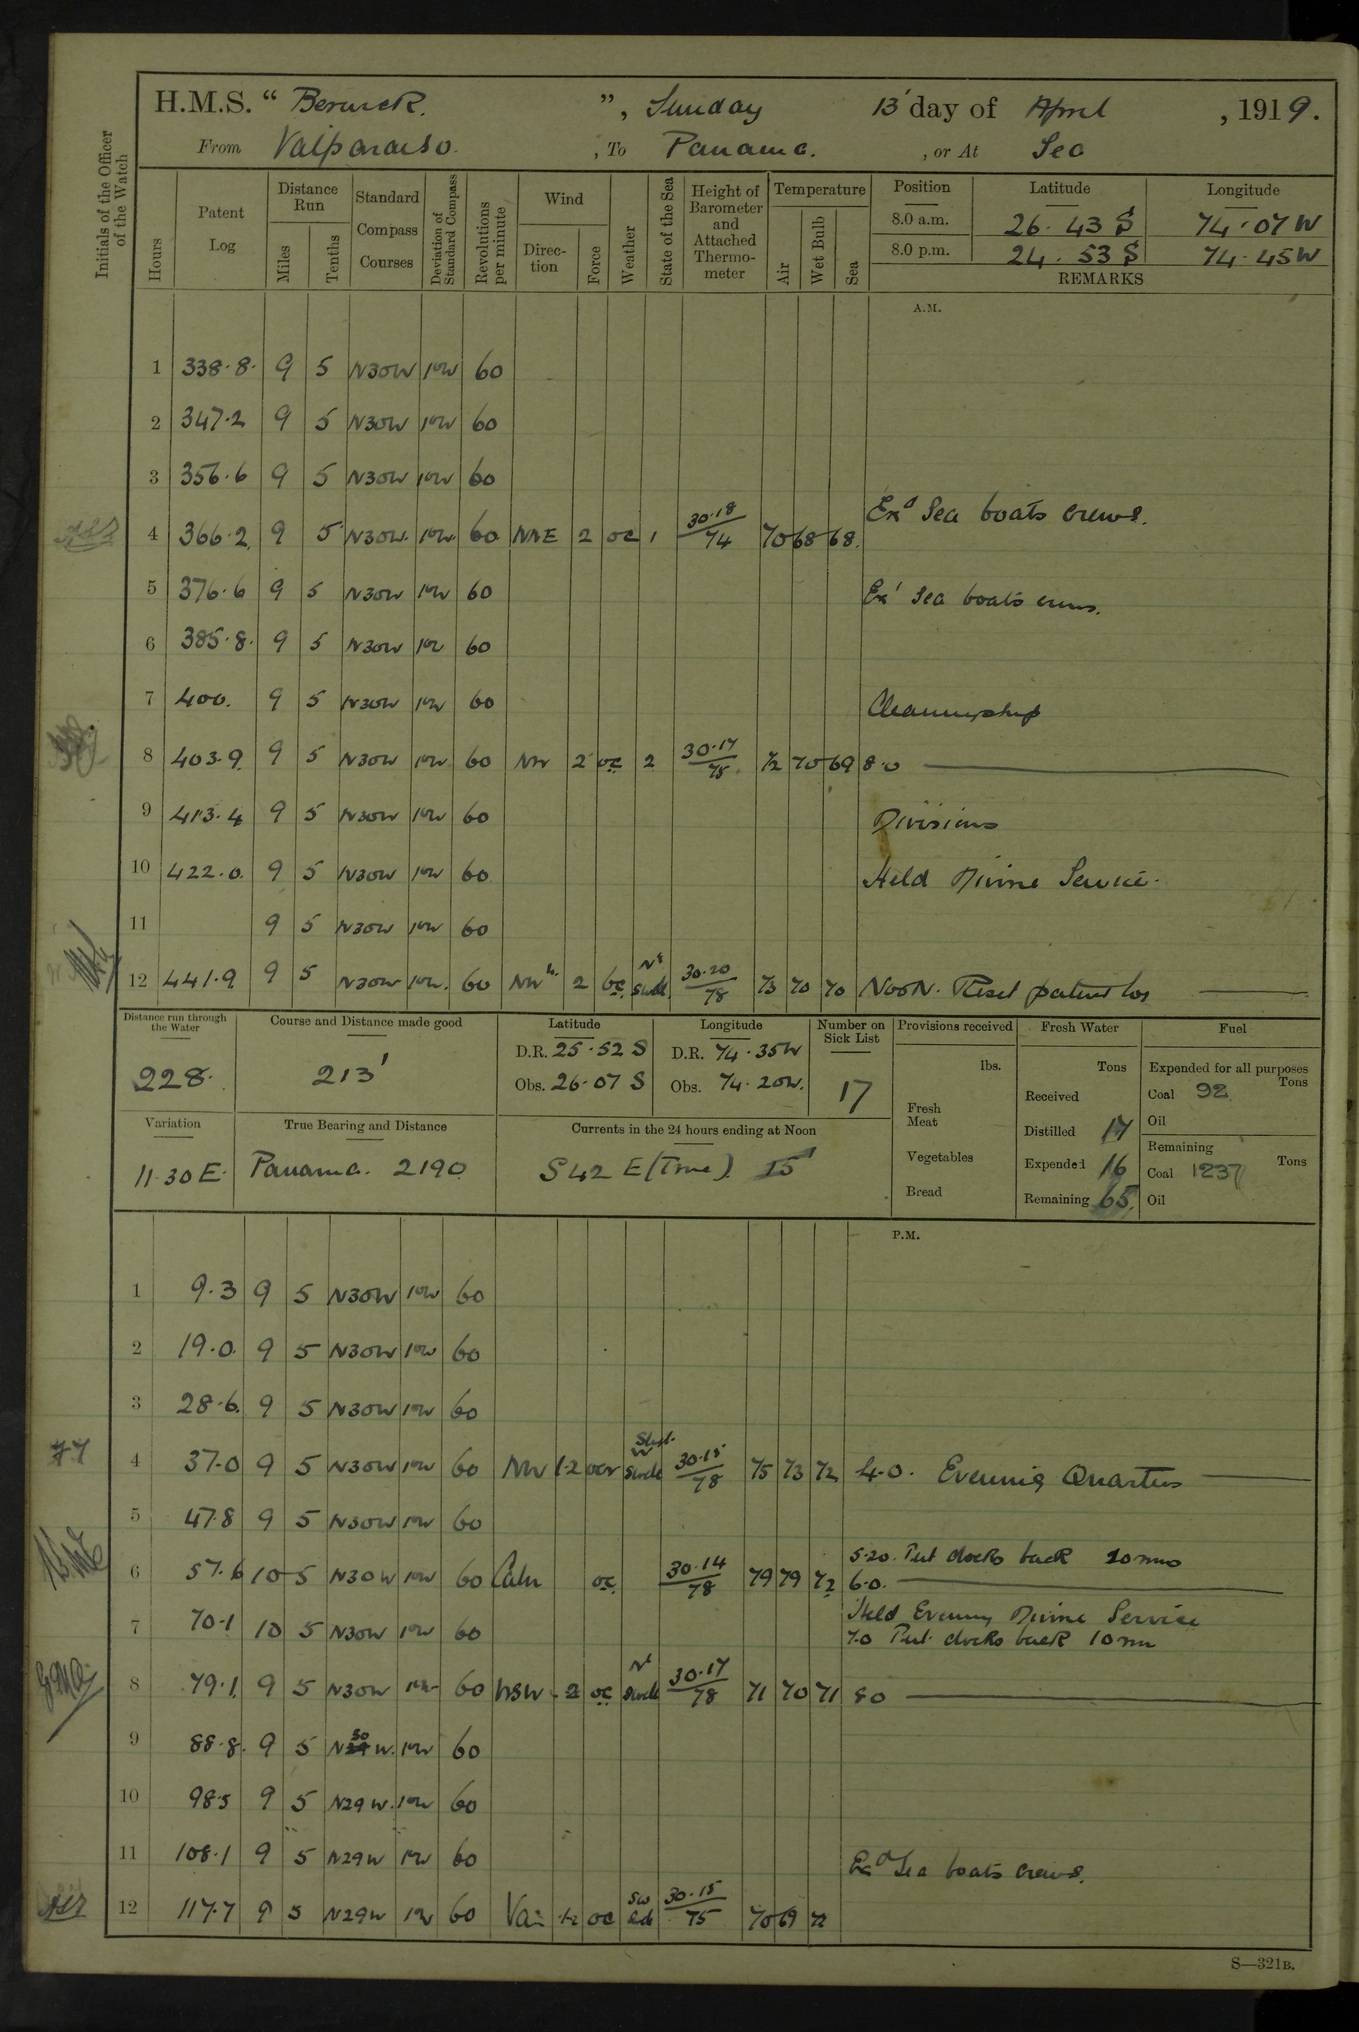 H.M.S. “ Berwick. ”, Sunday 13' day of April , 1919.
From Valparaiso. , To Panama. , or At Sea
Initials of the Officer of the Watch
Hours
Patent Log
Distance Run
Miles
Tenths
Standard Compass Courses
Deviation of Standard Compass
Revolutions per minute
Wind
Direc-tion
Force
Weather
State of the Sea
Height of Barometer and Attached Thermo-meter
Temperature
Air
Wet Bulb
Sea
Position Latitude Longitude
8.0 a.m. 26. 43 S 74. 07 W
8.0 p.m. 24. 53 S 74. 45 W
REMARKS
A.M.
1 338.8. 9 5 N30W 1°W 60
2 347.2 9 5 N30W 1°W 60
3 356.6 9 5 N30W 1°W 60
Exd Sea boats crews.
4 366.2 9 5 N30W 1°W 60 NNE 2 oc 1 30.18/74 70 68 68
5 376.6 9 5 N30W 1°W 60 Exd Sea boats crews.
6 385.8. 9 5 N30W 1°W 60
7 400. 9 5 N30W 1°W 60 Cleaning ship
8 403.9. 9 5 N30W 1°W 60 NW 2 oc 2 30.17/78 72 70 69 8.0
9 413.4 9 5 N30W 1°W 60 Divisions
10 422.0. 9 5 N30W 1°W 60 Held Divine Service.
11 9 5 N30W 1°W 60
12 441.9 9 5 N30W 1°W 60 2 bc. Swell 30.20/78 73 70 70 NOON. Reset patent log
Distance run through the Water
228.
Course and Distance made good
213'
Latitude
D.R. 25.52 S
Obs. 26.07 S
Longitude
D.R. 74.35W
Obs. 74.20W.
Number on Sick List
17
Provisions received
lbs.
Fresh Meat
Vegetables
Bread
Fresh Water
Tons
Received
Distilled 17
Expended 16
Remaining 65.
Fuel
Expended for all purposes
Tons
Coal 92
Oil
Remaining
Tons
Coal 1237
Oil
Variation
11.30 E.
True Bearing and Distance
Panama. 2190
Currents in the 24 hours ending at Noon
S 42 E (True). 15'
P.M.
1 9.3 9 5 N30W 1°W 60
2 19.0. 9 5 N30W 1°W 60
3 28.6. 9 5 N30W 1°W 60
4 37.0 9 5 N30W 1°W 60 NW 1-2 Swell 30.15/78 75 73 72 4.0. Evening Quarters
5 47.8 9 5 N30W 1°W 60
5.20. Put clocks back 20 mns
6 57.6 10 5 N30W 1°W 60 Calm oc. 30.14/78 79 79 72 6.0.
Held Evening Divine Service
7 70.1 10 5 N30W 1°W 60 7.0 Put clocks back 10 mn
8 79.1 9 5 N30W 1°W 60 WSW 2 oc Swell 30.17/78 71 70 71 8.0
9 88.8. 9 5 N30W. 1°W 60
10 98.5 9 5 N29W. 1°W 60
11 108.1 9 5 N29W 1°W 60
Exd Sea boats crews.
12 117.7 9 5 N29W 1°W 60 1-2 oc 30.15/75 70 69 72
S—321B.